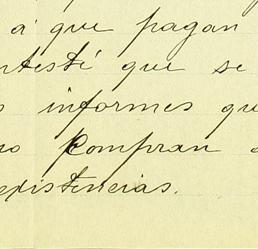 á que pagan
ntesté que se
s informes qu
no compran
existencias.